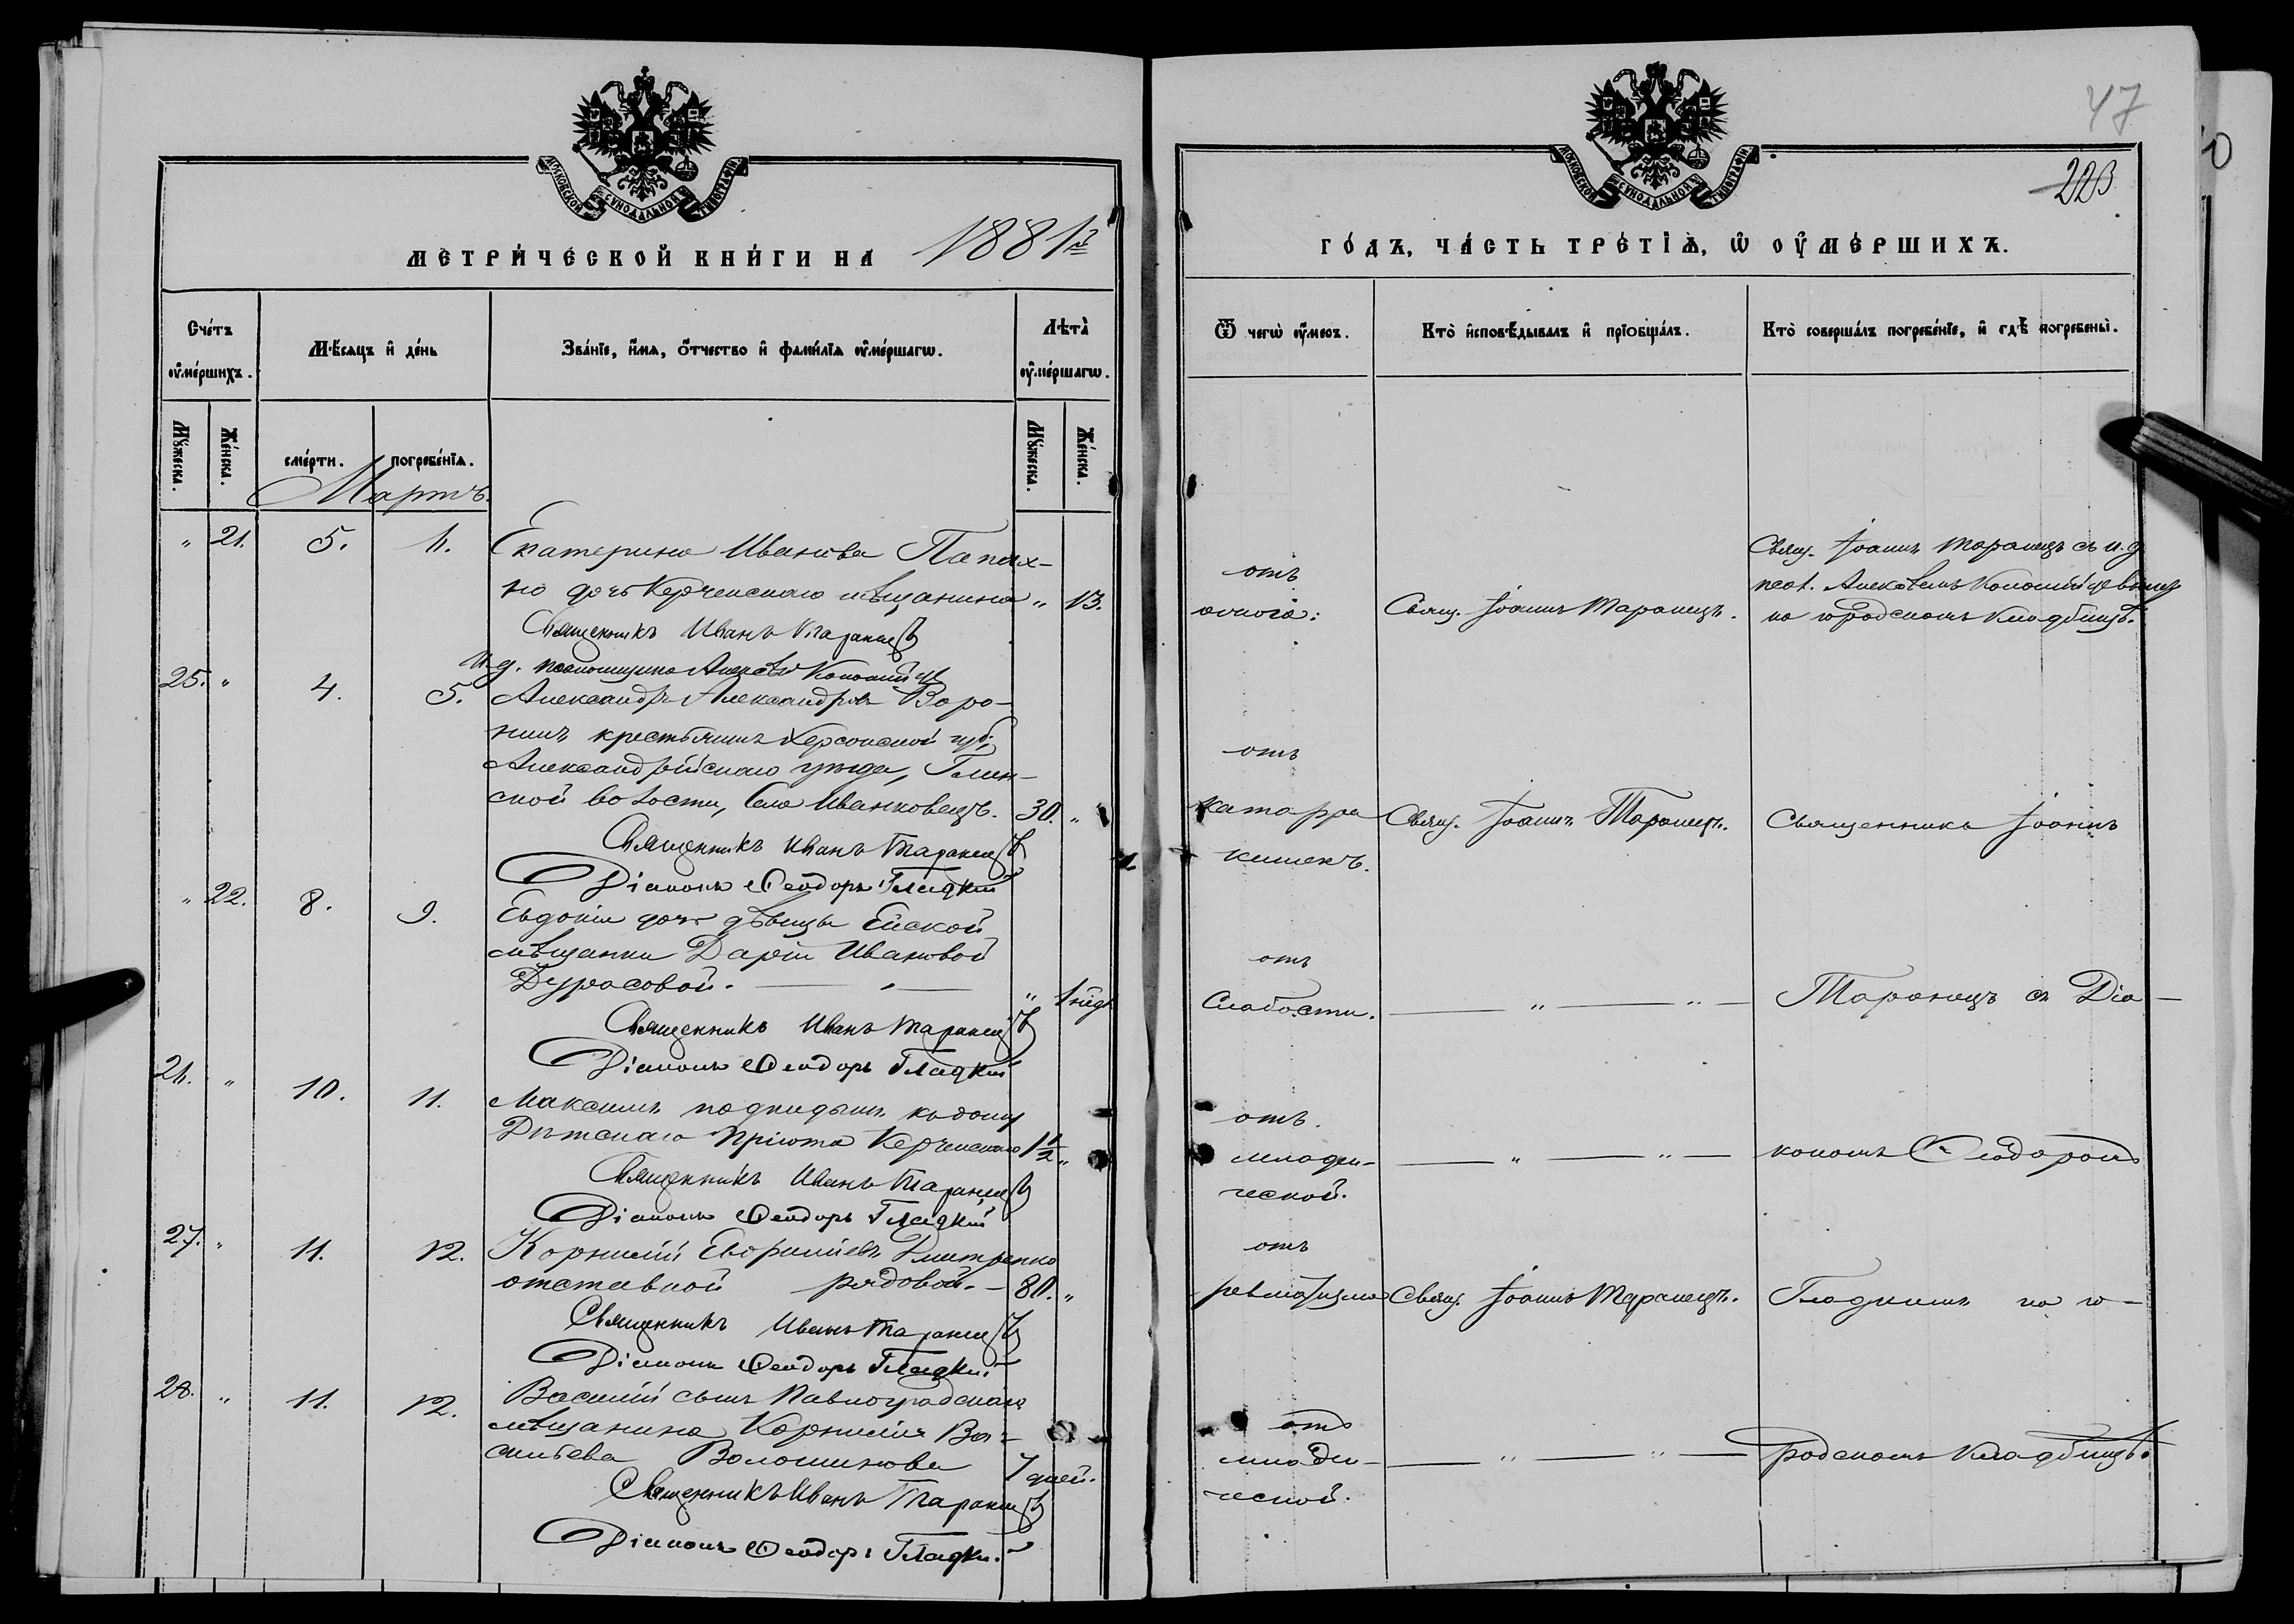 МОСКОВСКОЙ СѴНОДАЛЬНОЙ ТИПОГРАФІИ
МЕТРИ́ЧЕСКОЙ КНИ́ГИ НА 1881й
Сче́тъ ᲂу҆ме́ршихъ.
Мѣ́сѧцъ и҆ де́нь
Зва́нїе, и҆́мѧ, ѻ҆́тчество и҆ фами́лїѧ ᲂу҆ме́ршагѡ.
Лѣта̀ ᲂу҆ме́ршагѡ.
Мꙋ́жеска.
Же́нска.
сме́рти.
погребе́нїѧ.
Мꙋ́жеска.
Же́нска.
Мартъ.
" 21. 5. 6. Екатерина Иванова Папах-
но дочь Керченскаго мѣщанина " 13.
Священникъ Иванъ Таранецъ
И. д. псаломщика Алексѣй Коломійцевъ
25. " 4. 5. Александръ Александровъ Воро-
нинъ крестьянинъ Херсонской губ.
Александрійскаго уѣзда, Глин-
ской волости, села Иванковецъ. 30. "
Священникъ Иванъ Таранецъ
Діаконъ Ѳеодоръ Гладкій
" 22. 8. 9. Евдокія дочь дѣвицы Ейской
мѣщанки Даріи Ивановой
Дурасовой. " 1 нед.
Священникъ Иванъ Таранецъ
Діаконъ Ѳеодоръ Гладкій
26. " 10. 11. Максимъ подкидышъ къ дому
Дѣтскаго пріюта Керченскаго 1½ "
Священникъ Иванъ Таранецъ
Діаконъ Ѳеодоръ Гладкій
27. " 11. 12. Корнилій Дмитренко
отставной рядовой. 80. "
Священникъ Иванъ Таранецъ
Діаконъ Ѳеодоръ Гладкій
28. " 11. 12. Василій сынъ Павлоградскаго
мѣщанина Корнилія Ва-
сильева Волошинова 7 дней.
Священникъ Иванъ Таранецъ
Діаконъ Ѳеодоръ Гладкій
47
223
МОСКОВСКОЙ СѴНОДАЛЬНОЙ ТИПОГРАФІИ
ГО́ДЪ, ЧА́СТЬ ТРЕ́ТЇѦ, Ѡ ОУ҆МЕ́РШИХЪ.
Ѿ чегѡ̀ ᲂу҆́меръ.
Кто̀ и҆сповѣ́дывалъ и҆ прїѡбща́лъ.
Кто̀ соверша́лъ погребе́нїе, и҆ гдѣ̀ погребены̀.
отъ
Свящ. Іоаннъ Таранецъ.
Свящ. Іоаннъ Таранецъ съ и. д.
псал. Алексѣемъ Коломійцевымъ
на городскомъ кладбищѣ.
отъ
катарра
кишекъ.
Свящ. Іоаннъ Таранецъ.
Священникъ Іоаннъ
отъ
слабости.
" "
Таранецъ съ Діа-
отъ
младен-
ческой.
" "
кономъ Ѳеодоромъ
отъ
ревматизма
Свящ. Іоаннъ Таранецъ.
Гладкимъ на го-
отъ
младен-
ческой.
" "
родскомъ кладбищѣ.